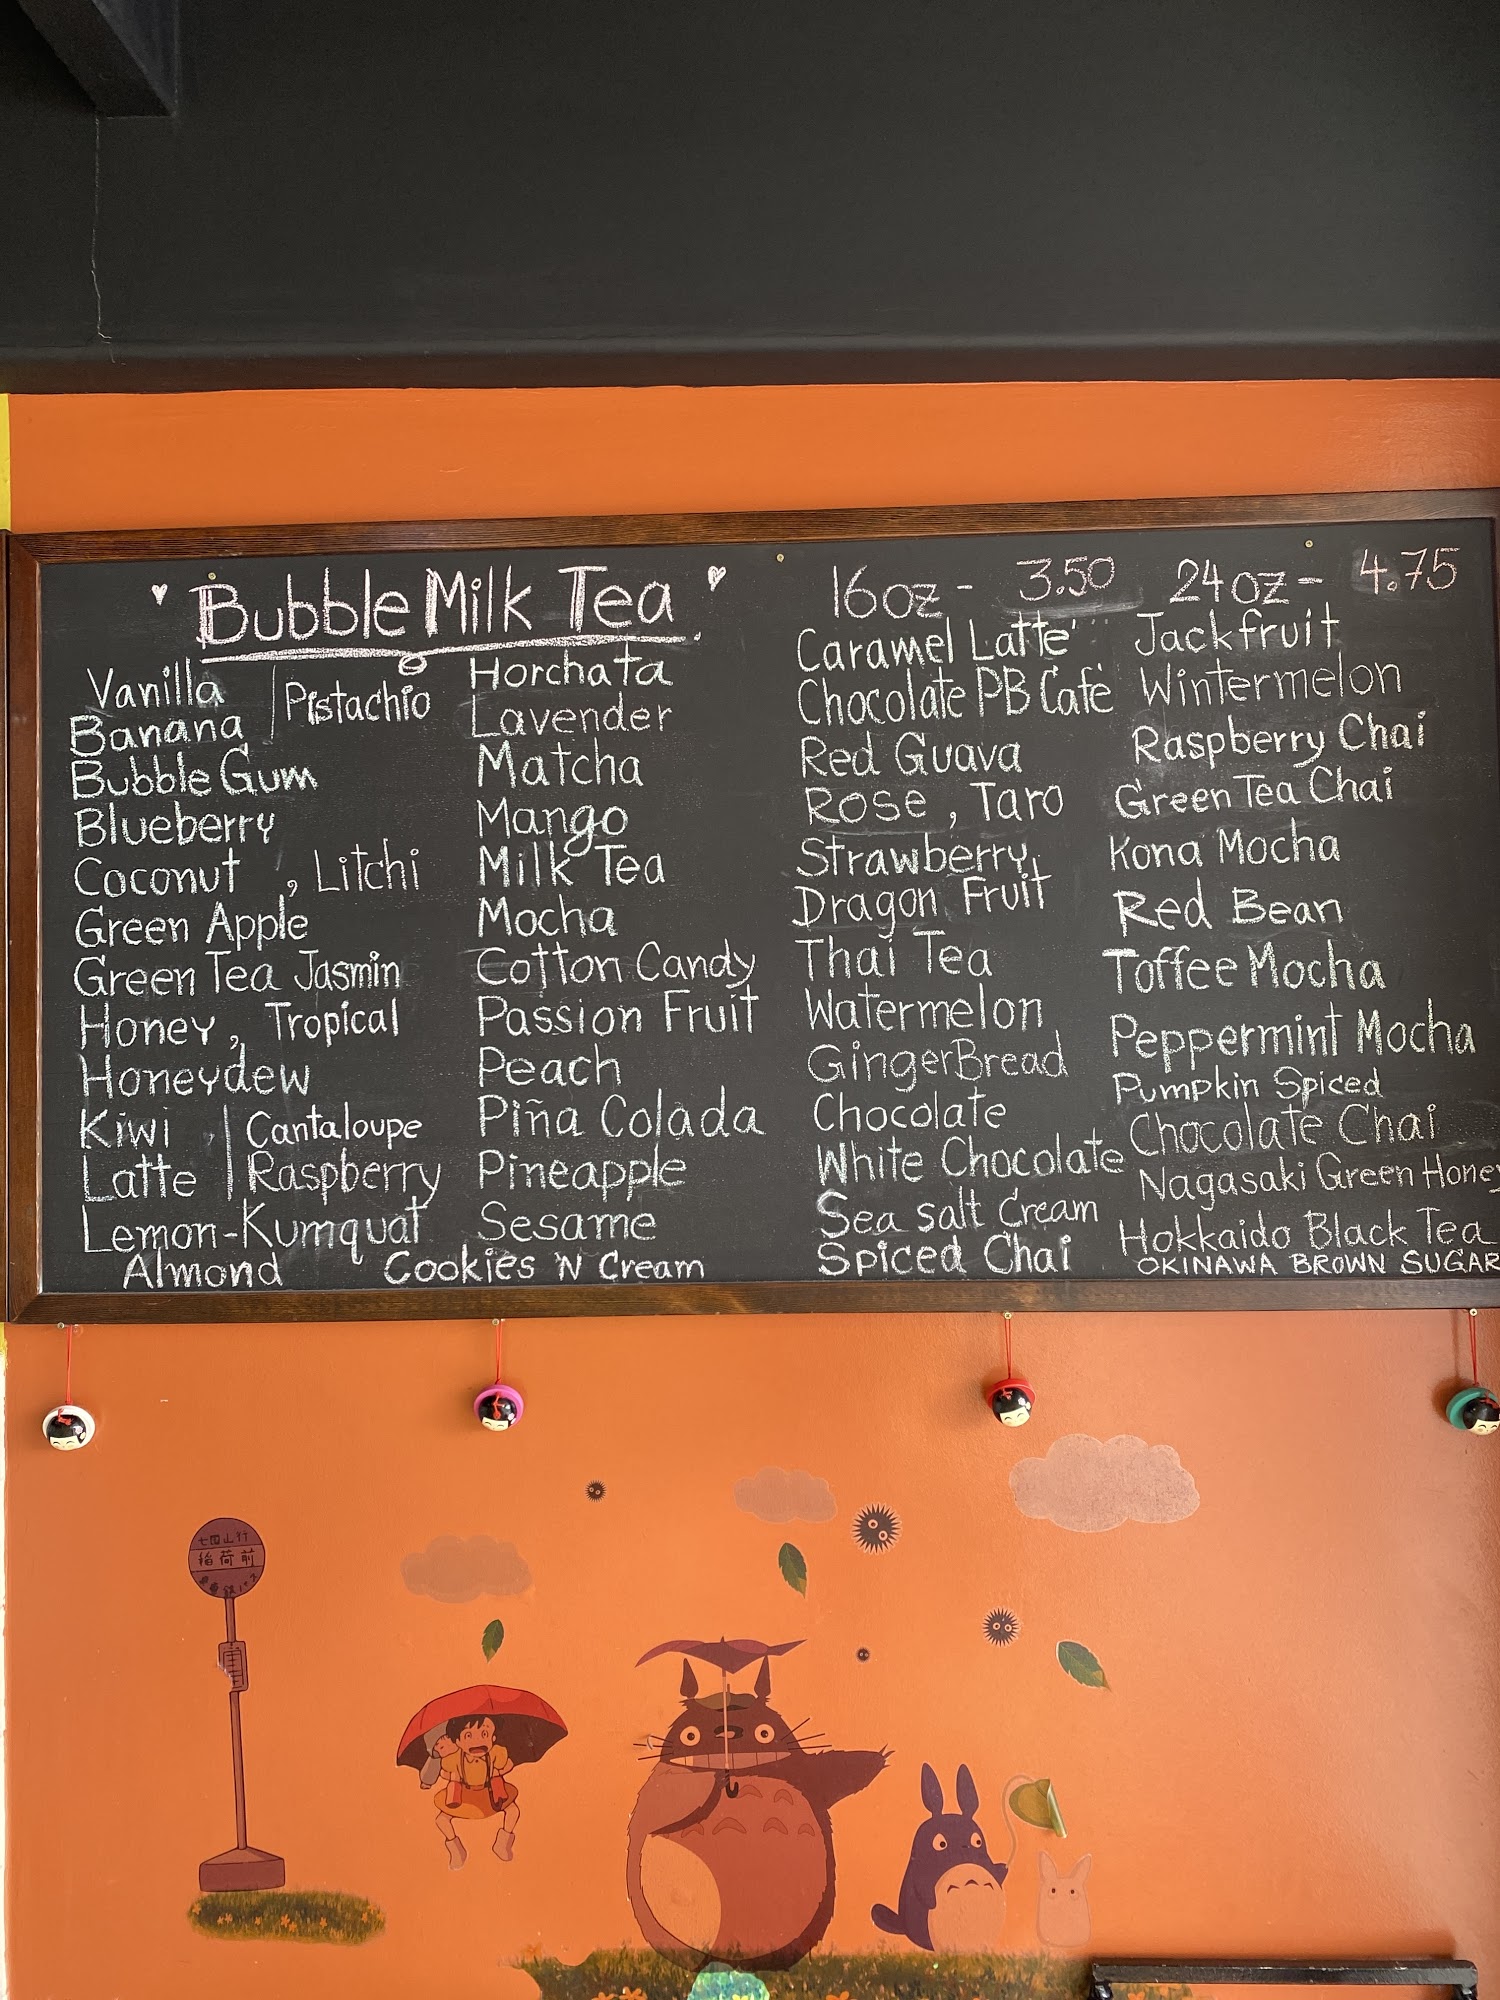 Bubble Milk Tea
16oz - 3.50 24oz - 4.75
Vanilla | Pistachio
Banana
Bubble Gum
Blueberry
Coconut , Litchi
Green Apple
Green Tea Jasmin
Honey, Tropical
Honeydew
Kiwi | Cantaloupe
Latte | Raspberry
Lemon-Kumquat
Almond
Horchata
Lavender
Matcha
Mango
Milk Tea
Mocha
Cotton Candy
Passion Fruit
Peach
Piña Colada
Pineapple
Sesame
Cookies 'N Cream
Caramel Latte
Chocolate PB Café
Red Guava
Rose, Taro
Strawberry
Dragon Fruit
Thai Tea
Watermelon
GingerBread
Chocolate
White Chocolate
Sea salt Cream
Spiced Chai
Jackfruit
Wintermelon
Raspberry Chai
Green Tea Chai
Kona Mocha
Red Bean
Toffee Mocha
Peppermint Mocha
Pumpkin Spiced
Chocolate Chai
Nagasaki Green Honey
Hokkaido Black Tea
OKINAWA BROWN SUGAR
七国山行
稲荷前